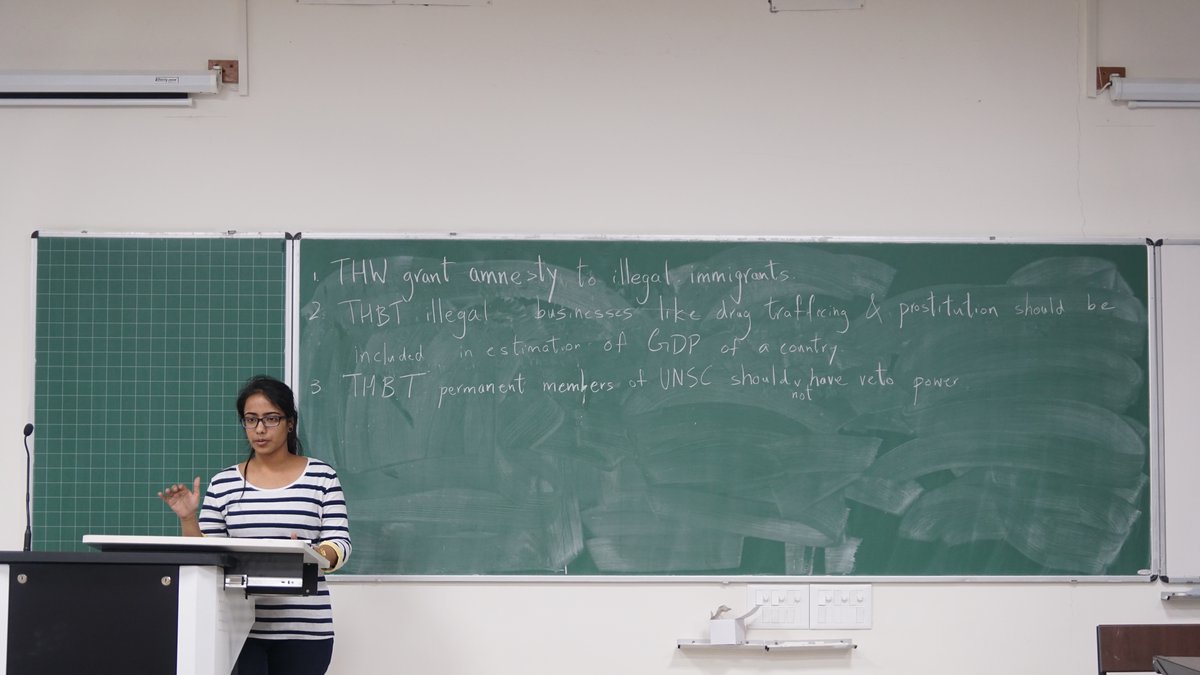 1. THW grant amnesty to illegal immigrants.
2. THBT illegal businesses like drug trafficing & prostitution should be
included in estimation of GDP of a country.
3 THBT permanent members of UNSC should not have veto power.